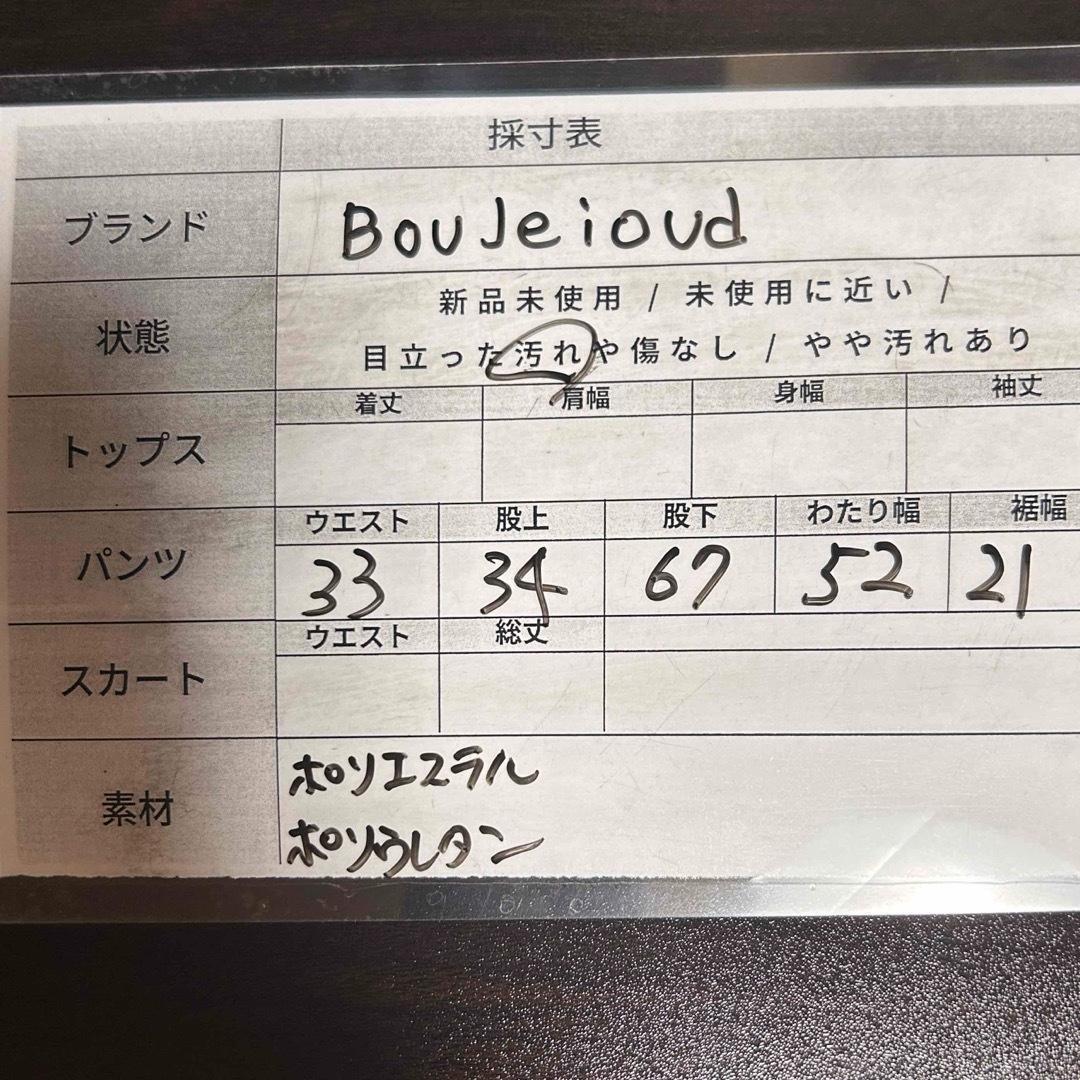 採寸表
ブランド BouJeioud
状態 新品未使用 / 未使用に近い /
目立った汚れや傷なし / やや汚れあり
着丈 肩幅 身幅 袖丈
トップス
ウエスト 股上 股下 わたり幅 裾幅
パンツ 33 34 67 52 21
ウエスト 総丈
スカート
素材 ポリエステル
ポリウレタン